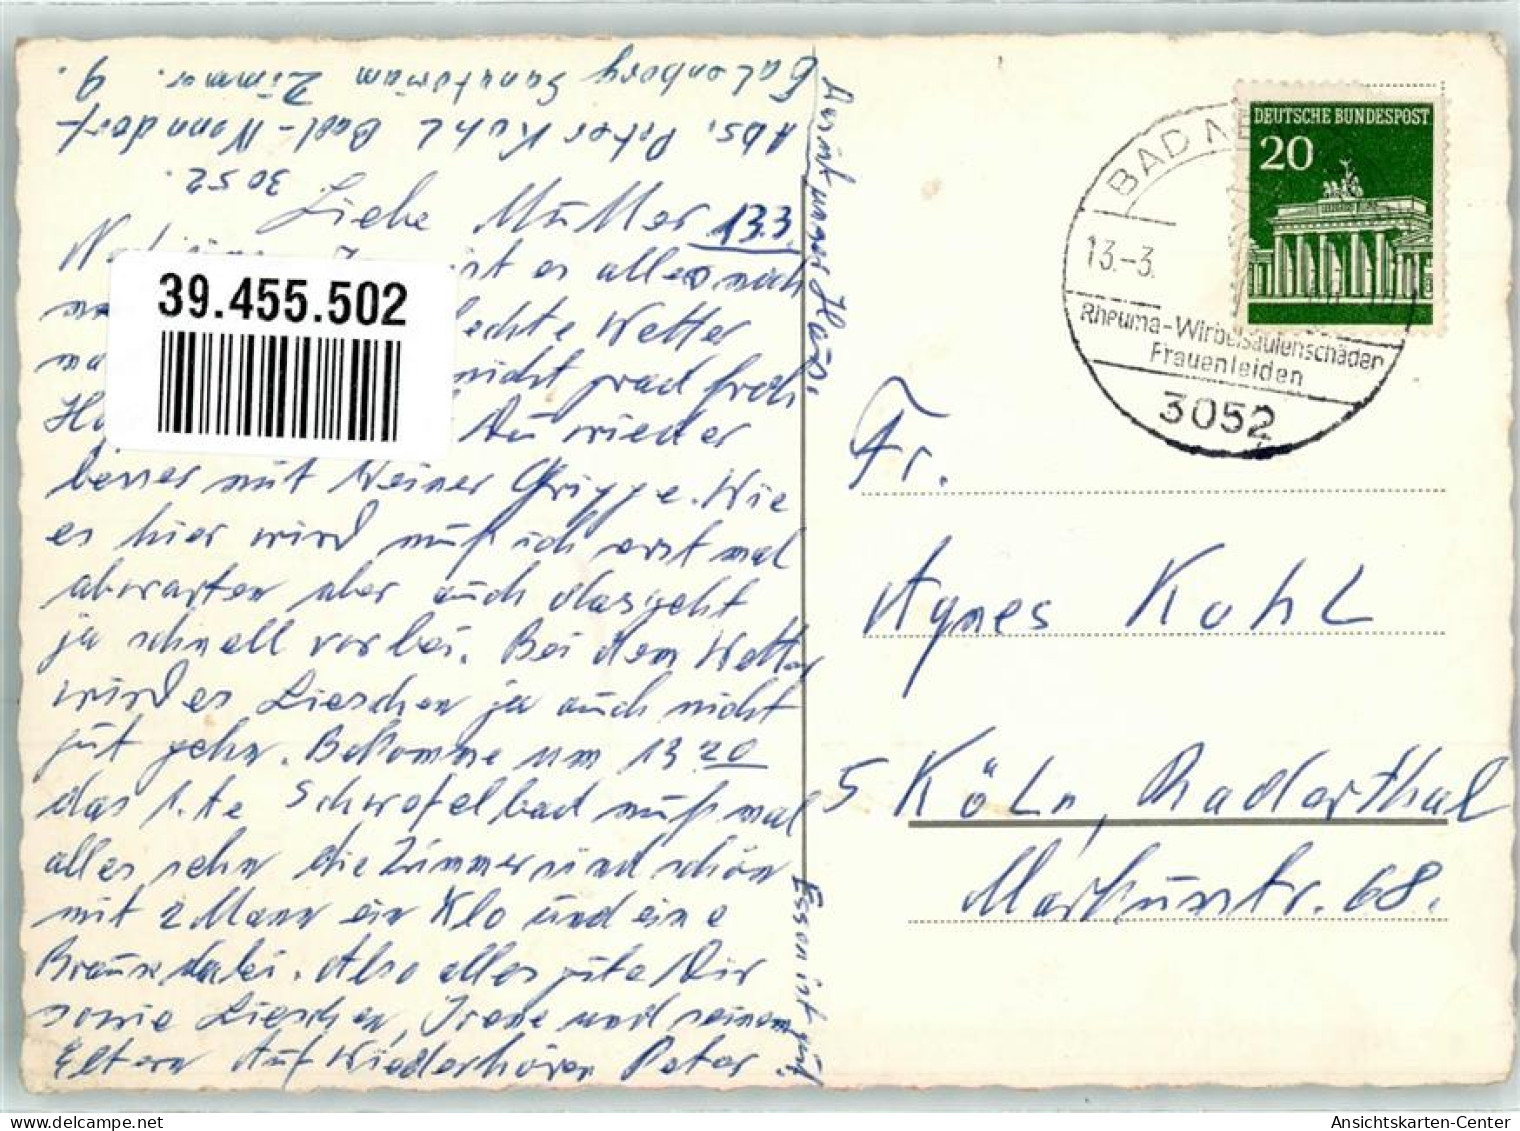 Calenberg Sanatorium Zimmer. 9.
Abs. Peter Kühl Bad-Nenndorf
3052.
Liebe Mutter 13.3.
ist es alles noch
Wetter
nicht grad froh
Du wieder
besser mit Deiner Grippe. Wie
es hier wird muß ich erst mal
abwarten aber auch das geht
ja schnell vorbei. Bei dem Wetter
wird es Lieschen ja auch nicht
gut gehn. Bekomme um 13 20
das 1.te Schwefelbad muß mal
alles sehn die Zimmer sind schön
mit 2 Mann ein Klo und eine
Brause dabei. Also alles gute Dir
sowie Lieschen, Irene und seinen
Eltern Auf Wiederhören Peter.
Haus.
Essen ist gut
39.455.502
BAD NE
13.-3.
Rheuma-Wirbelsäulenschäden
Frauenleiden
3052
DEUTSCHE BUNDESPOST
20
Fr.
Agnes Kohl
5 Köln, Raderthal
Markusstr. 68.
Ansichtskarten-Center